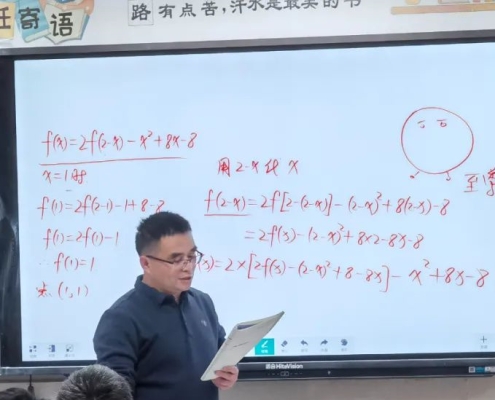 寄语
路有点苦，汗水是最美的书
f(x)=2f(2-x)-x²+8x-8
x=1时
f(1)=2f(2-1)-1+8-8
f(1)=2f(1)-1
∴f(1)=1
点(1,1)
用2-x代x
f(2-x)=2f[2-(2-x)]-(2-x)²+8(2-x)-8
=2f(x)-(2-x)²+8×2-8x-8
f(x)=2×[2f(x)-(2-x)²+8-8x]-x²+8x-8
至
HiteVision